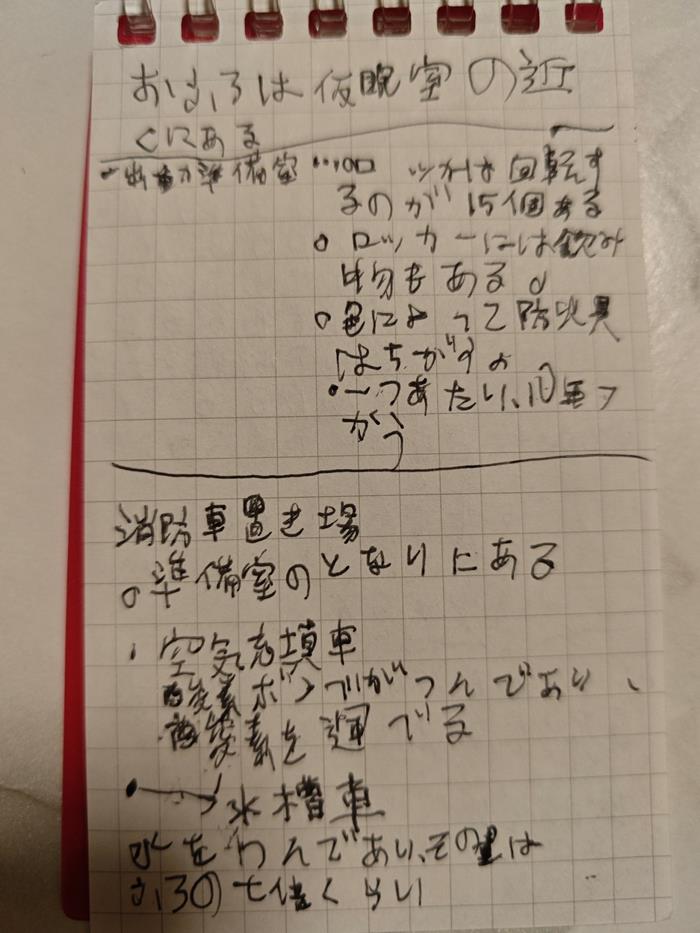 おふろは仮眠室の近
くにある
・出動準備室…ロッカーは回転す
るのが15個ある
○ロッカーには飲み
物もある。
○色によって防火具
はちがう。
・一つあたり、10
消防車置き場
○準備室のとなりにある
・空気充填車
酸素ボンベがつんであり、
酸素を運でる
・水槽車
水をつんであり、その量は
ふろの七倍くらい